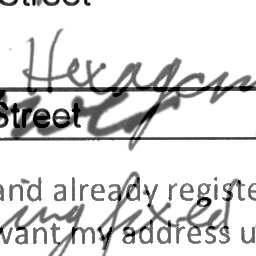 Street
Hexagon
Street
and already registe
ing fixed
want my address u